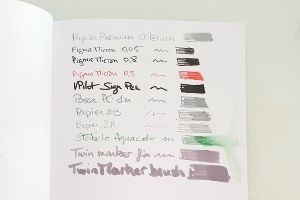 Papier Premium Criterium
Pigma Micron 0,05
Pigma Micron 0,8
Pigma Micron 0,5
Pilot Sign Pen
Posca PC 1m
Papier 2B
Papier 2H
Stabilo Aquacolor
Twin marker fin
Twin Marker brush